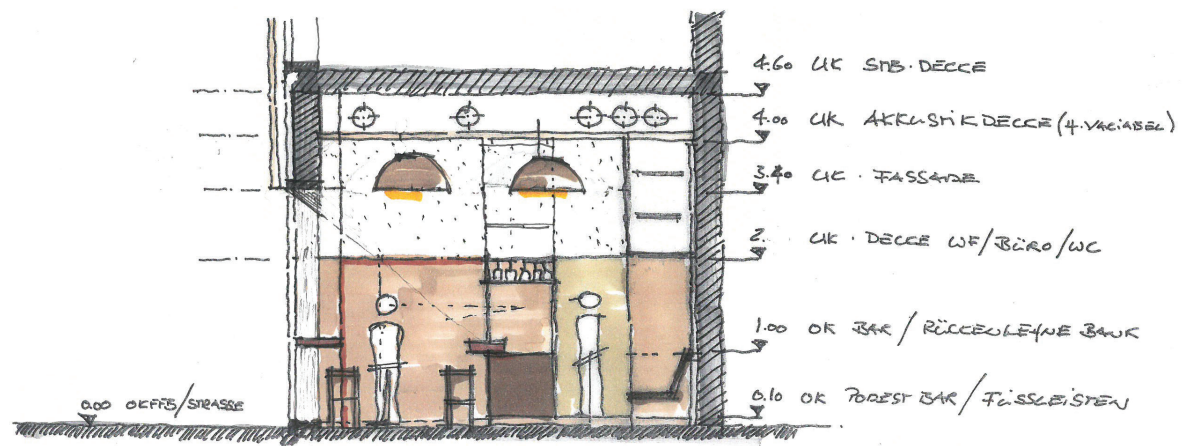 4.60 UK STB. DECKE
4.00 UK AKKUSTIKDECKE (4. VARIABEL)
3.40 UK. FASSADE
2. UK. DECKE WF/BÜRO/WC
1.00 OK BAR / RÜCKENLEHNE BANK
0.10 OK PODEST BAR / FUSSLEISTEN
0.00 OKFFB/STRASSE